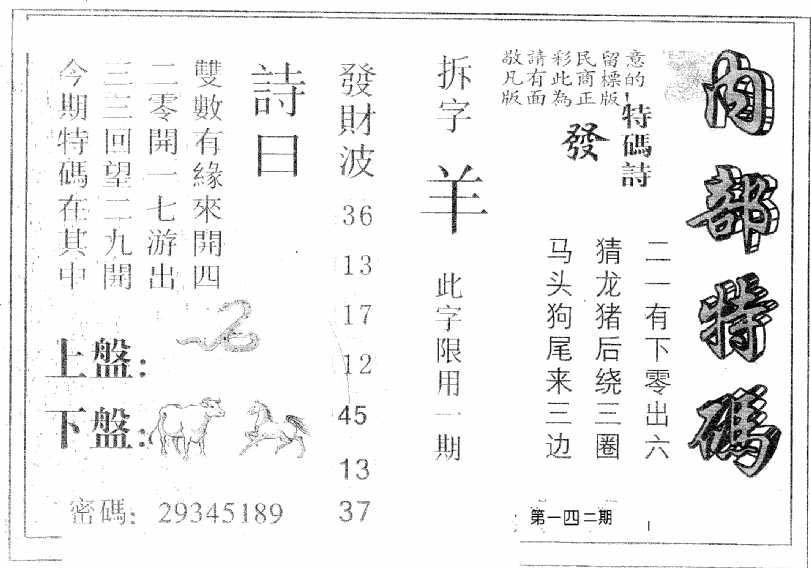 內部特碼
敬請彩民留意
凡有此商標的
版面為正版!
特碼詩
發
二一有下零出六
猜龙猪后绕三圈
马头狗尾来三边
第一四二期
拆字
羊
此字限用一期
發財波
36
13
17
12
45
13
37
詩曰
雙數有緣來開四
二零開一七游出
三三回望二九開
今期特碼在其中
上盤:
下盤:
密碼: 29345189